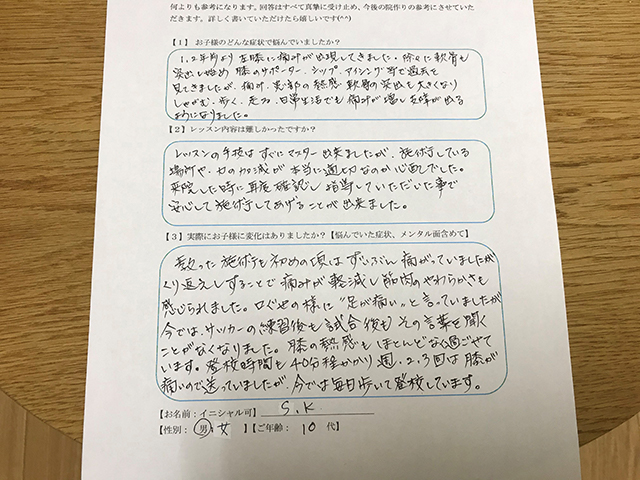 何よりも参考になります。回答はすべて真摯に受け止め、今後の院作りの参考にさせていた
だきます。詳しく書いていただけたら嬉しいです(^^)
【1】 お子様のどんな症状で悩んでいましたか？
1,2年前より左膝に痛みが出現してきました。徐々に軟骨も
突出し始め膝のサポーター、シップ、アイシング等で過去を
見てきましたが、痛み、患部の熱感、軟骨の突出も大きくなり
しゃがむ、歩く、走る、日常生活でも痛みが増し支障が出る
ようになりました。
【2】レッスン内容は難しかったですか？
レッスンの手技はすぐにマスター出来ましたが、施術している
場所や、力の加減が本当に適切なのか心配でした。
来院した時に再度確認し指導していただいた事で
安心して施術してあげることが出来ました。
【3】実際にお子様に変化はありましたか？【悩んでいた症状、メンタル面含めて】
教った施術も初めの頃はずいぶん痛がっていましたが
くり返えしすることで痛みが軽減し筋肉のやわらかさも
感じられました。口ぐせの様に"足が痛い"と言っていましたが
今では、サッカーの練習後も試合後もその言葉を聞く
ことがなくなりました。膝の熱感もほとんどなく過ごせて
います。登校時間も40分程かかり週、2,3回は膝が
痛いので送っていましたが、今では毎日歩いて登校しています。
【お名前：イニシャル可】 S.K
【性別： 男・女 】【ご年齢： 10 代】